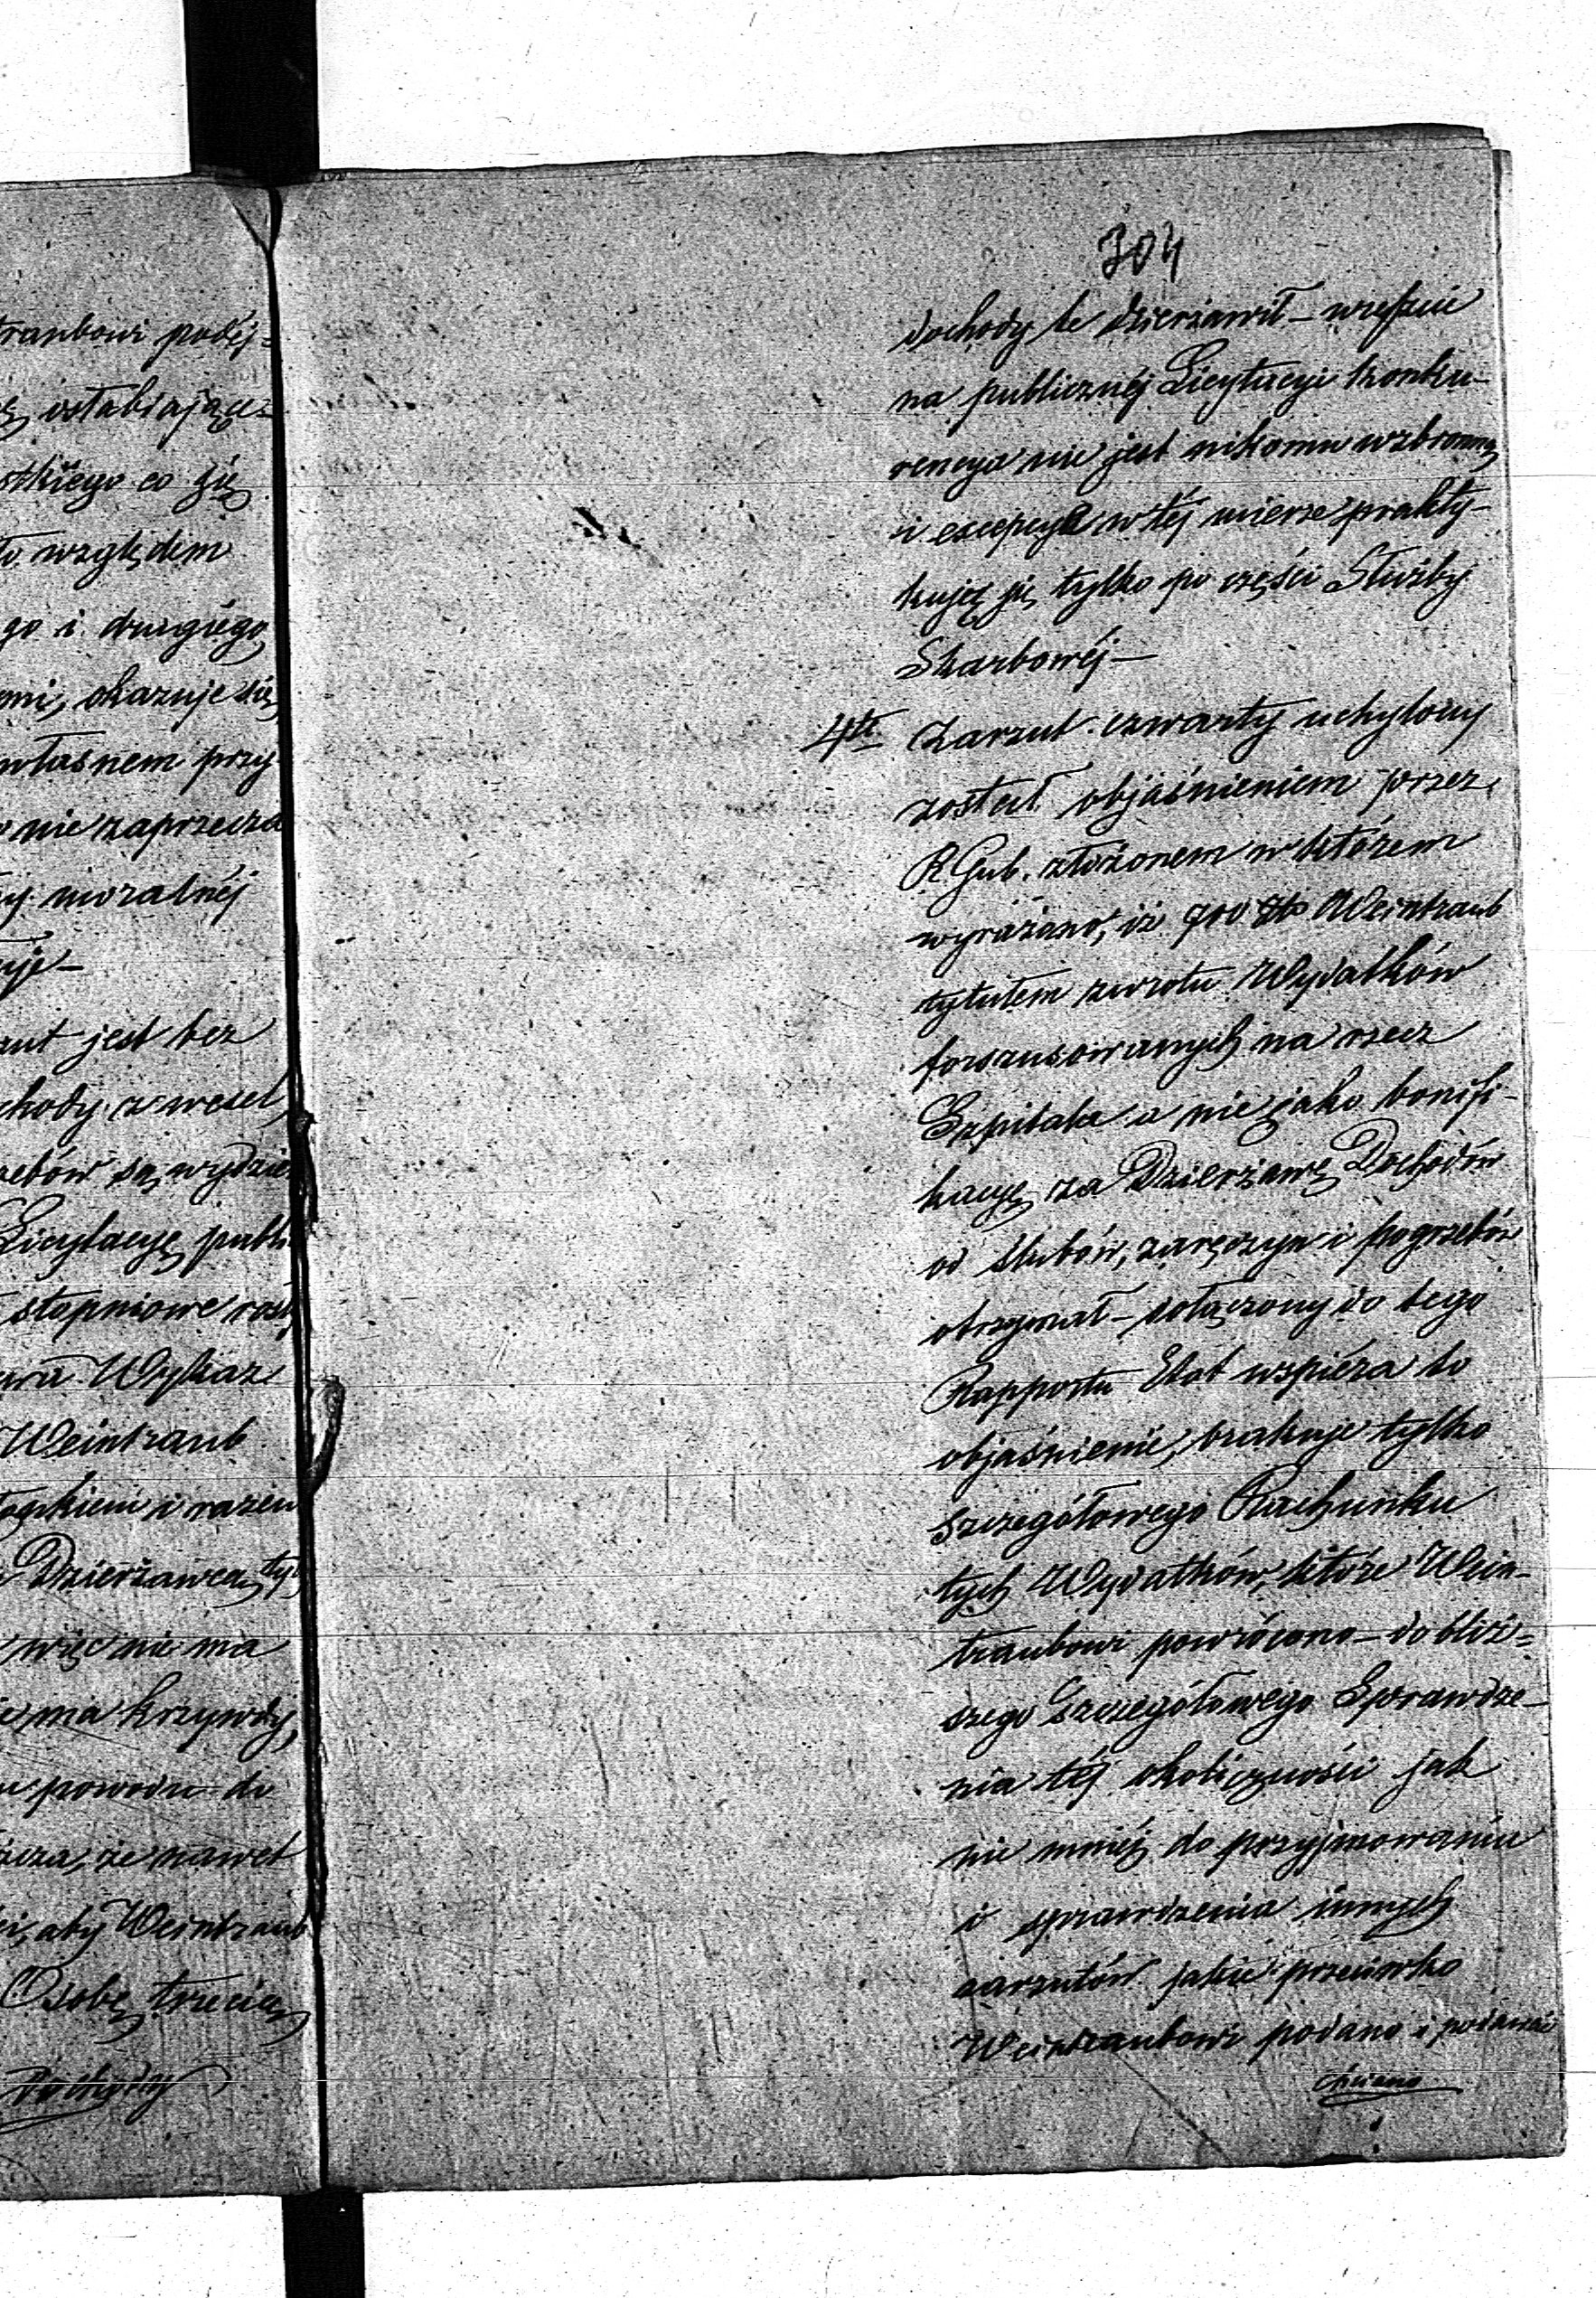 traubowi podéj-
ostabiające-
stkiego co się
to względem
go i drugiego
omi, okazuje się,
własnem przy
nie zaprzecza
moralnéj
uje –
zut jest bez
chody z wesel
zebów są wydzie
Licytacyę publi
stopniowe
Wykaz
Weintraub
i razem
Dzierżawcą tyl
więc nie ma
nie ma krzywdy,
powodu do
cza, że nawet
aby Weintraub
Osobę trzecią
Dochody
304
dochody te dzierżawił – wreszcie
na publicznéj Licytacyi konku-
rencya nie jest nikomu wzbroniona
i excepcye w téj mierze prakty-
kuję się tylko po części Służby
Skarbowéj –
4te Zarzut czwarty uchylony
został objaśnieniem przez
R Gub. złożonem w którem
wyrażano, iż 900 Zło Weintraub
tytułem zwrotu Wydatków
forszusowanych na rzecz
Szpitala a nie jako bonifi-
kacyę za Dzierżawę Dochodów
od ślubów, zaręczyn i pogrzebów
otrzymał – dołączony do tego
Rapportu Etat wspiéra to
objaśnienie, brakuje tylko
szczegółowego Rachunku
tych Wydatków, które Wein-
traubowi powrócono – do bliż-
szego szczegółowego Sprawdze-
nia téj okoliczności jak
nie mniéj do przyjmowania
i sprawdzenia innych
zarzutów jakie przeciwko
Weintraubowi podano i podawać
chciano